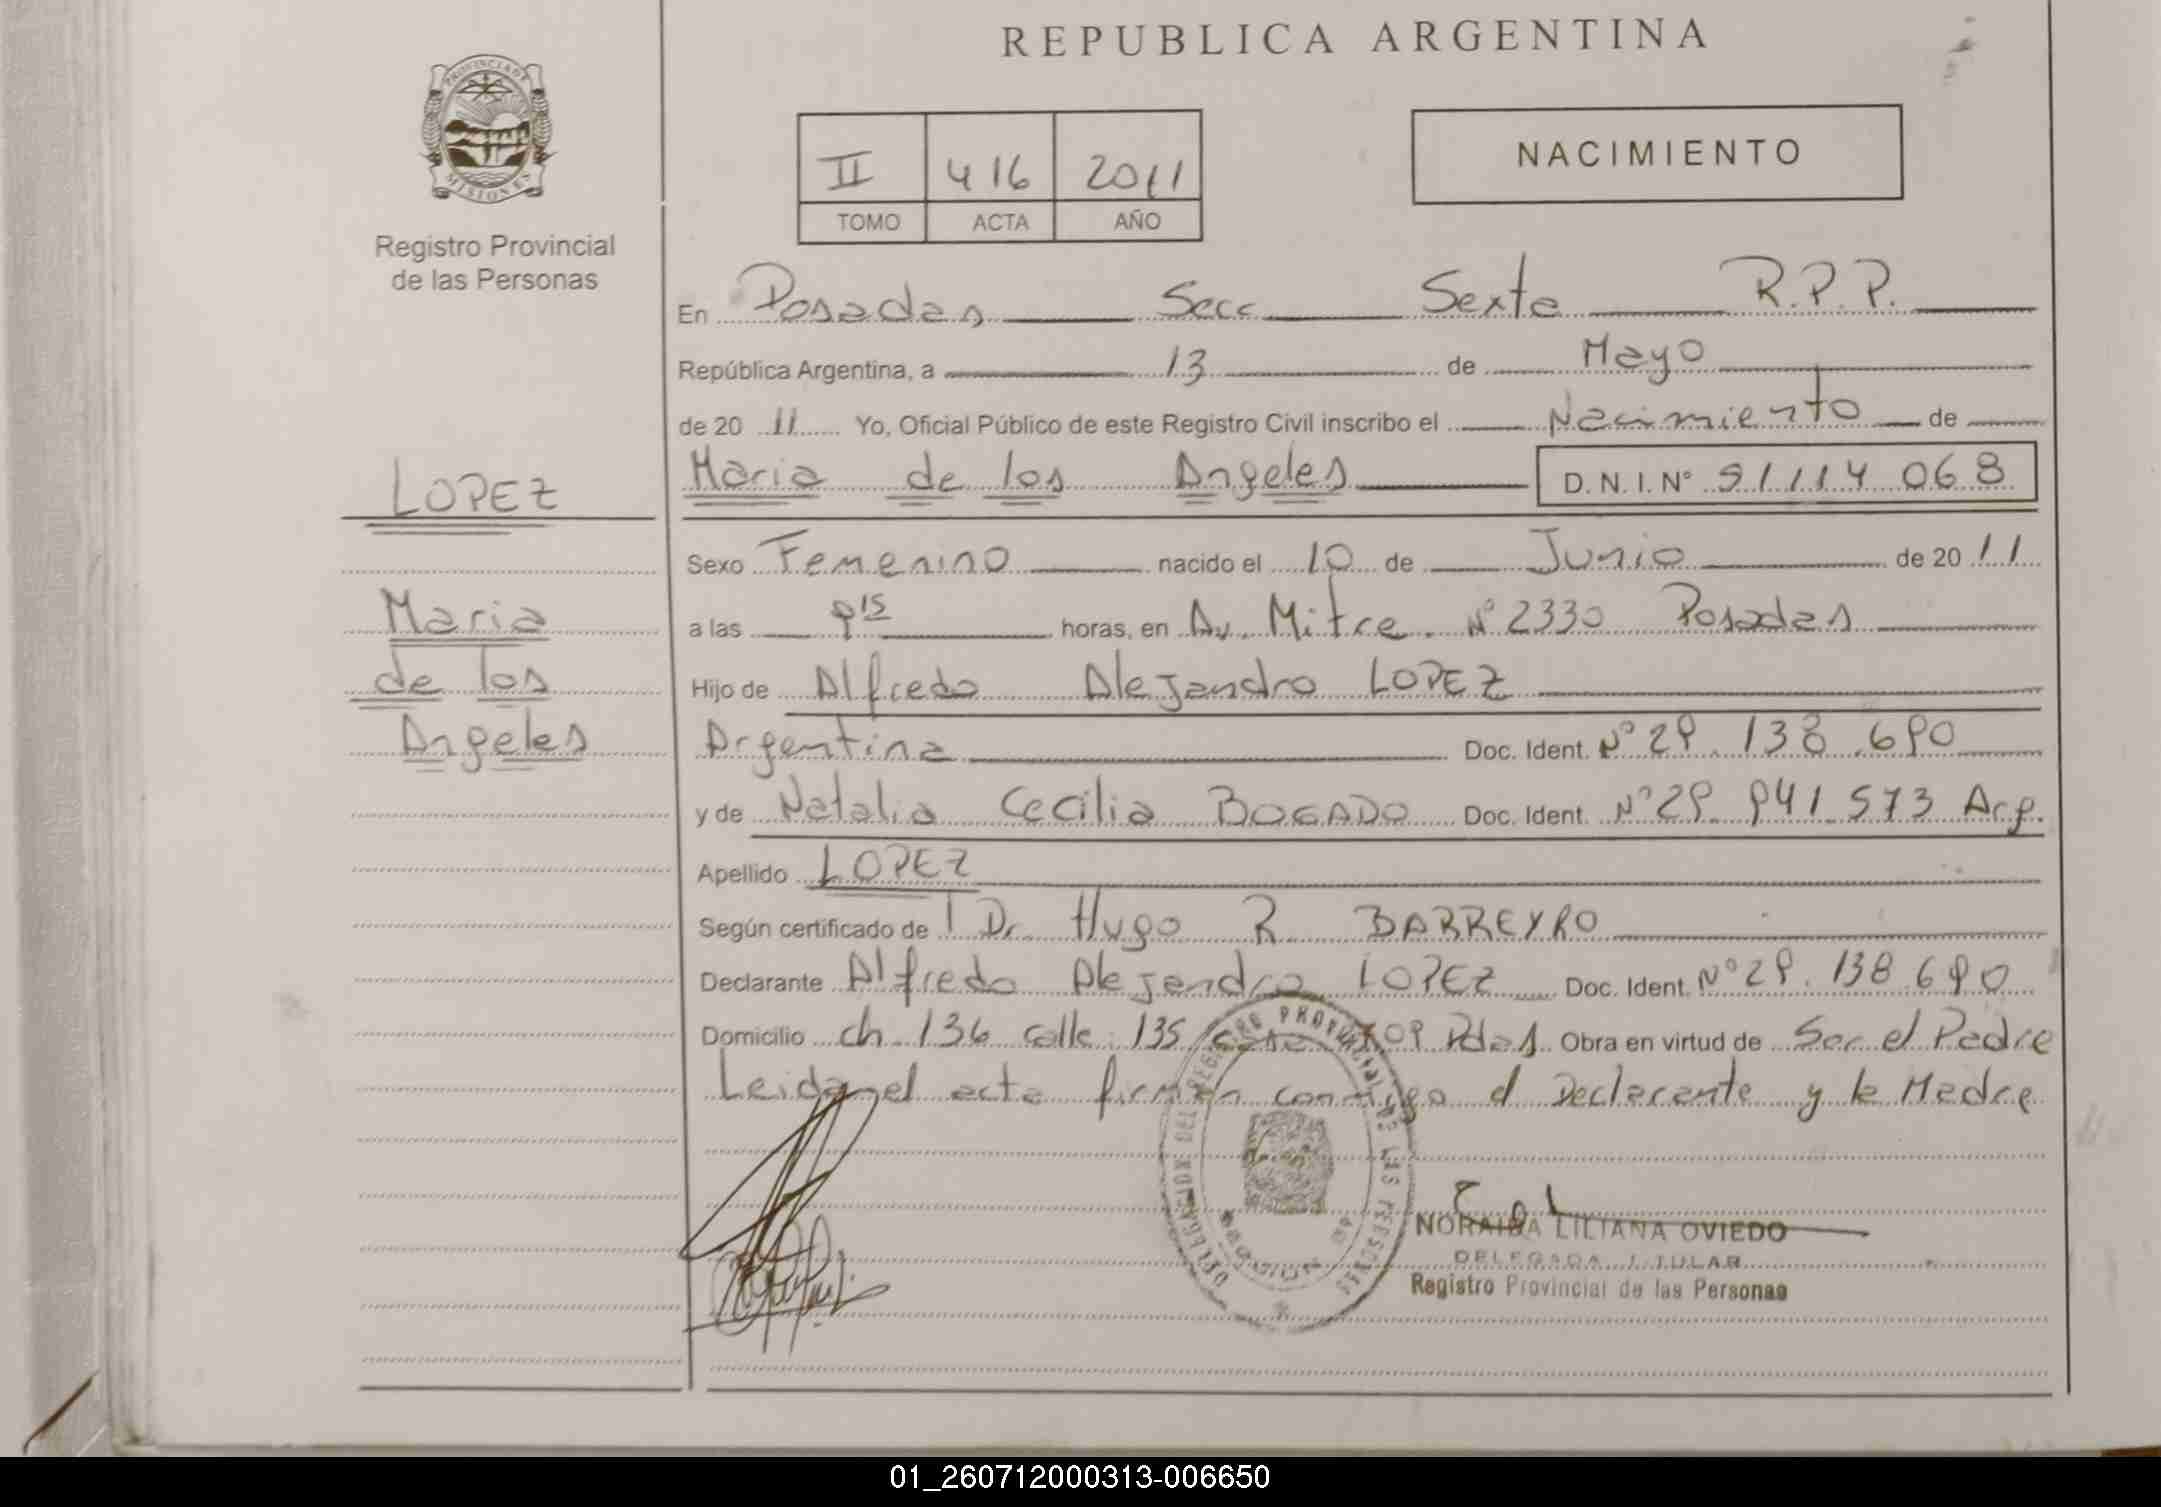 REPUBLICA ARGENTINA
PROVINCIA DE
MISIONES
Registro Provincial
de las Personas
II 416 2011
TOMO ACTA AÑO
NACIMIENTO
En Posadas Secc Sexta R.P.P.
República Argentina, a 13 de Mayo
de 20 11 Yo, Oficial Público de este Registro Civil inscribo el Nacimiento de
LOPEZ
Maria de los Angeles D.N.I. N° 51114 068
Sexo Femenino nacido el 10 de Junio de 20 11
Maria
de los
Angeles
a las 9 15 horas, en Av. Mitre N° 2330 Posadas
Hijo de Alfredo Alejandro LOPEZ
Argentina Doc. Ident. N° 29.138.690
y de Natalia Cecilia BOGADO Doc. Ident. N° 29.941.573 Arg.
Apellido LOPEZ
Según certificado de Dr Hugo R BARREYRO
Declarante Alfredo Alejandro LOPEZ Doc. Ident. N° 29.138.690
Domicilio ch 136 calle 135 casa Pdas Obra en virtud de Ser el Padre
Leida el acta firman conmigo el Declarante y la Madre
DELEGACION DEL REGISTRO PROVINCIAL DE LAS PERSONAS
NORAIDA LILIANA OVIEDO
DELEGADA TITULAR
Registro Provincial de las Personas
01_260712000313-006650